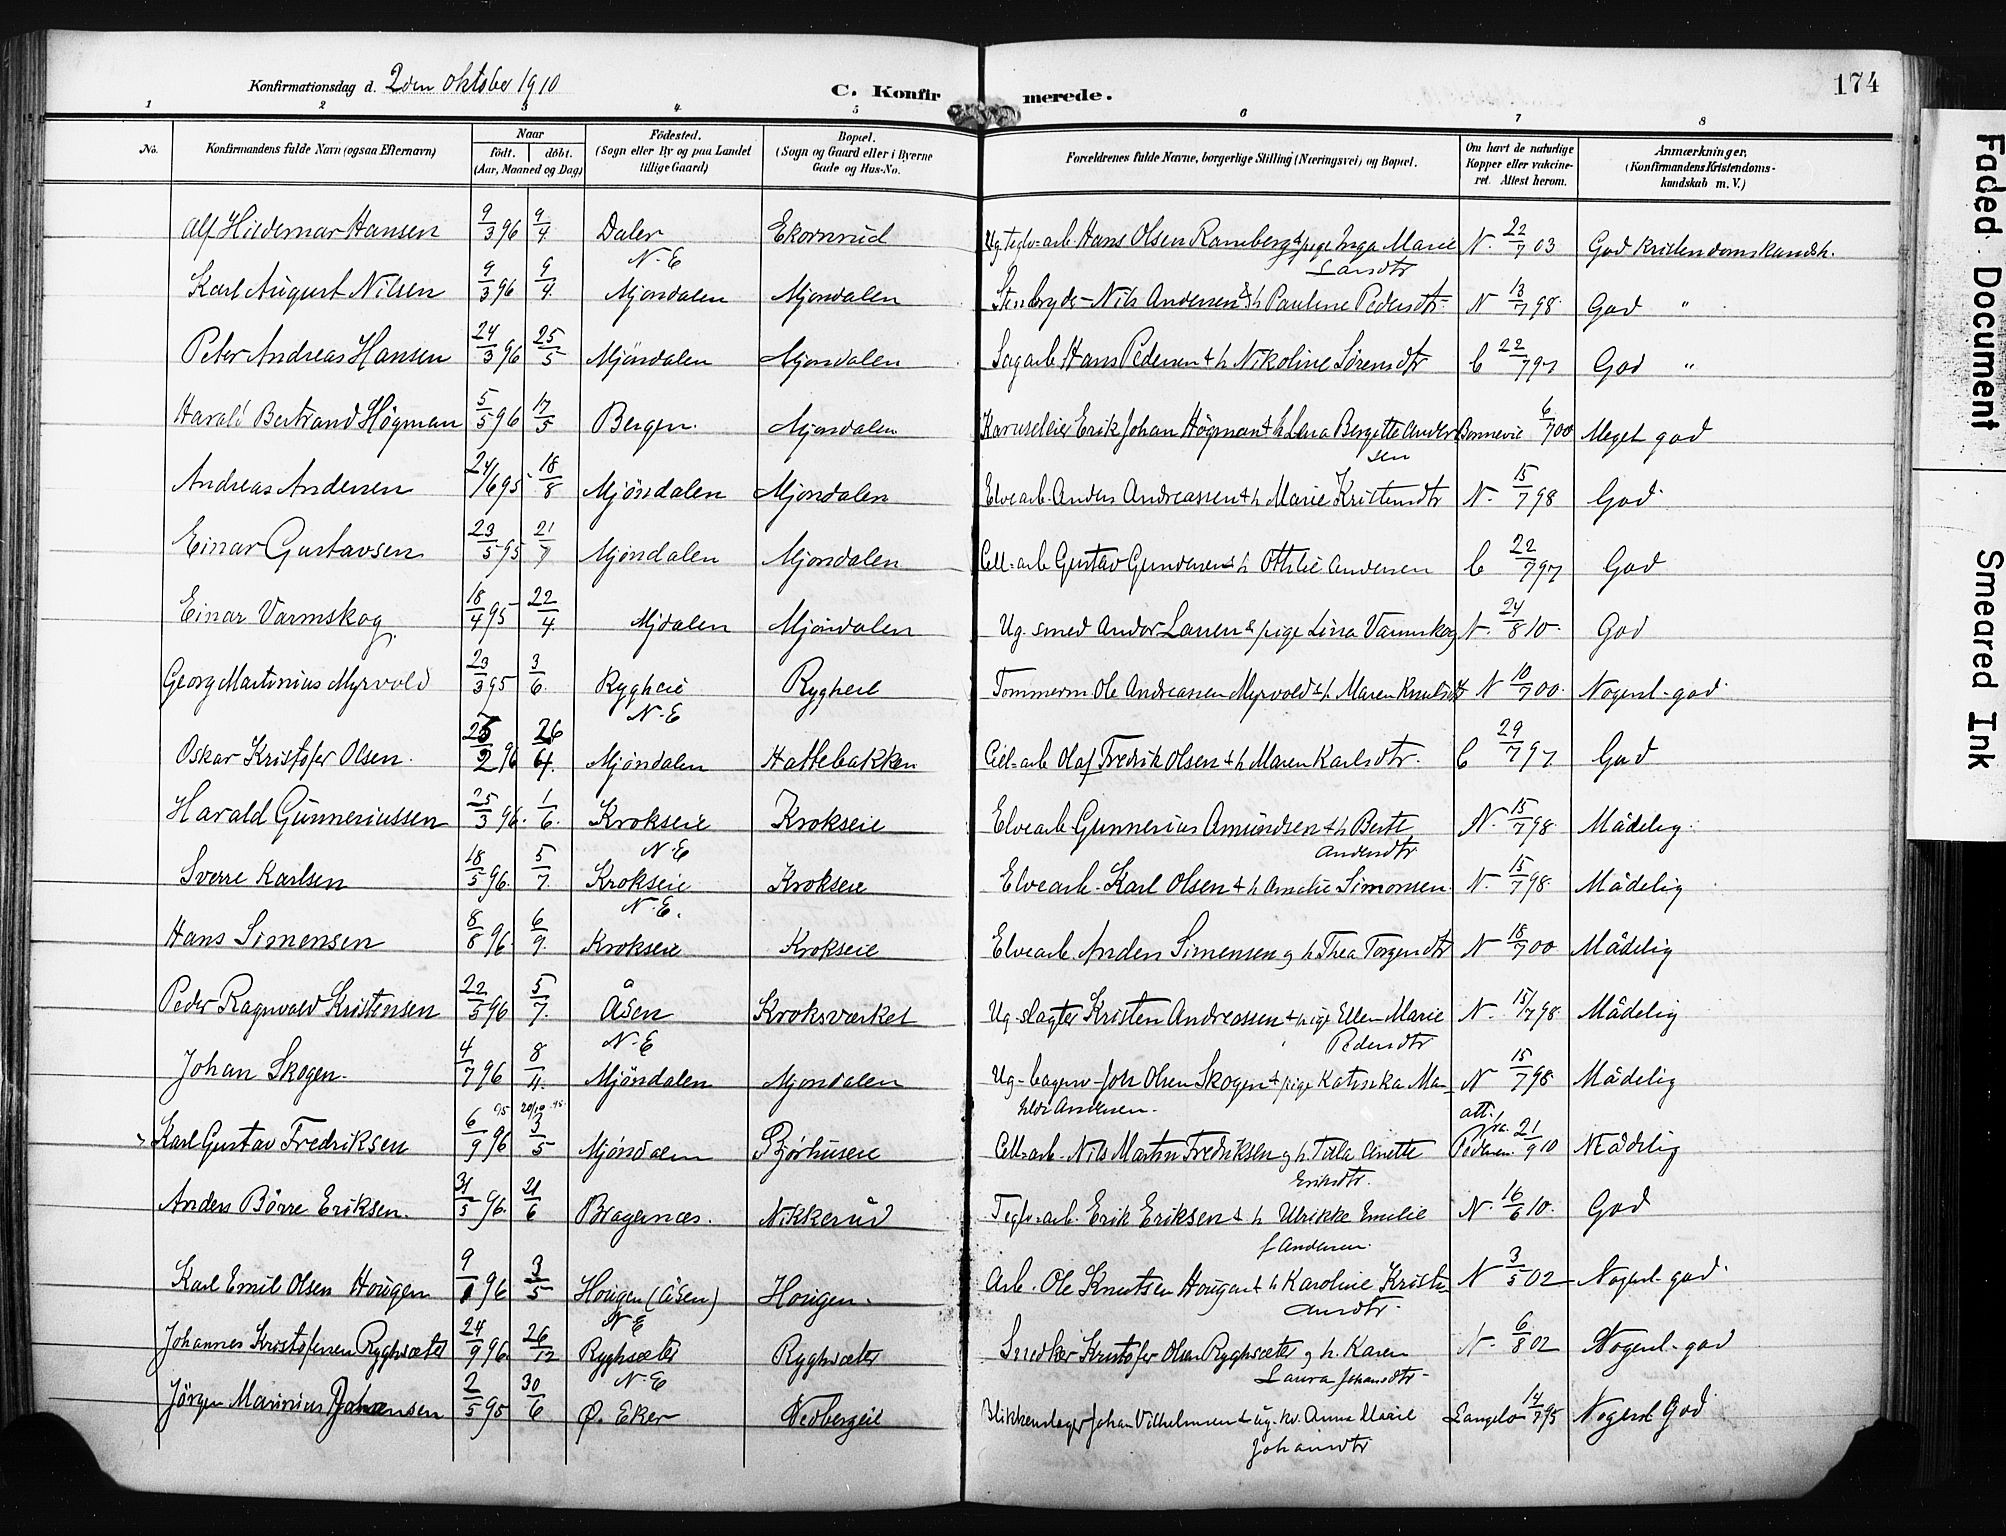 Konfirmationsdag d. 2den Oktober 1910 C. Konfirmerede. 174
1 2 3 4 5 6 7 8
No. Konfirmandens fulde Navn (ogsaa Efternavn) Naar født. døbt. (Aar, Maaned og Dag) Fødested. (Sogn eller By og paa Landet tillige Gaard) Bopæl. (Sogn og Gaard eller i Byerne Gade og Hus-No. Forældrenes fulde Navne, borgerlige Stilling (Næringsvei) og Bopæl. Om havt de naturlige Kopper eller vakcineret. Attest herom. Anmærkninger, (Konfirmandens Kristendomskundskab m. V.)
Alf Hildemar Hansen 9/3 96 9/4 Daler N.E Ekornrud Ug. teglv-arb Hans Olsen Ramberg & pige Inga Marie Larsdtr N. 22/7 03 God kristendomskundsk.
Karl August Nilsen 9/3 96 9/4 Mjøndalen Mjøndalen Stenbryder Nils Andersen & h Pauline Pedersdtr. N 13/7 98 God "
Peter Andreas Hansen 24/3 96 25/5 Mjöndalen Mjøndalen Sagarb Hans Pedersen & h Nikoline Sørensdtr C 22/7 97 God "
Harald Bertrand Högman 5/5 96 17/5 Bergen. Mjøndalen Karuseleier Erik Johan Högman & h Lena Bergette Andersen Bonnevie 6/7 00 Meget god
Andreas Andersen 24/6 95 18/8 Mjöndalen Mjöndalen Elvearb. Anders Andreassen & h Marie Kristensdtr N. 15/7 98 God.
Einar Gustavsen 23/5 95 21/7 Mjöndalen Mjöndalen Cell-arb Gustav Gundersen & h Othlie Andersen C 22/7 97 God
Einar Varmskog 18/4 95 22/4 Mjdalen Mjöndalen Ug. smed Andor Larsen & pige Lina Varmskog N. 24/8 10. God
Georg Martinius Myrvold 23/3 95 3/6. Rygheie N.E Rygheie Tommerm Ole Andreassen Myrvold & h. Maren Knudsdtr N 10/7 00. Nogenl. god.
Oskar Kristofer Olsen. 25/2 96 26/4. Mjöndalen Hattebakken Cell-arb Olaf Fredrik Olsen & h Maren Karlsdtr. C 29/7 97 God
Harald Gunneriussen 25/3 96. 1/6. Krokseie N.E Krokseie Elvearb Gunnerius Amundsen & h Berte Andersdtr N. 15/7 98. Mådelig.
Sverre Karlsen 18/5 96. 5/7. Krokseie N.E. Krokseie Elvearb. Karl Olsen & h Amalie Simonsen. N. 15/7 98. Mådelig
Hans Simensen 8/8 96. 6/9. Krokseie Krokseie Elvearb. Anders Simensen og h Thea Torgersdtr N 18/7 00 Mådelig
Peder Ragnvald Kristensen 22/5 96 5/7. Åsen N.E Kroksværket Ug. slagter Kristen Andreassen & pige Ellen Marie Pedersdtr N. 15/7 98. Mådelig
Johan Skogen. 4/7 96 8/4. Mjöndalen Mjöndalen Ug. Joh Olsen Skogen & pige Katinka Mathilde Andersen. N 15/7 98. Mådelig
Karl Gustav Fredriksen 6/9 96 95 3/5 20/10 95. Mjöndalen Bjørhuseie Cell-arb. Nils Martin Fredriksen og h. Tilla Anette Eriksdtr. att. fra. Pedersen 21/9 10 Mådelig
Anders Börre Eriksen. 31/5 96. 21/6 Bragernæs. Nikkerud Teglv-arb. Erik Eriksen & h Ulrikke Emilie f Andersen. N. 16/6 10. God
Karl Emil Olsen Hougen 9/1 96 3/5 Hougen (Åsen) N.E Hougen. Arb. Ole Knutsen Hougan & h Karoline Kristiansdtr. N 3/5 02 Nogenl. god.
Johannes Kristofersen Ryghsæter 24/9 96. 26/12 Ryghsæter N.E Ryghsæter Snedker Kristofer Olsen Ryghsæter og h. Karen Laura Johansdtr N. 6/8 02 Nogenl. god
Jörgen Marinius Johansen 2/5 95 30/6 Ø. Eker Vedbergeie Blikkenslager Johan Vilhelmsen & ug. kv. Anna Marie Johansdtr Langelo 14/7 95 Nogenl God
Faded Document
Smeared Ink